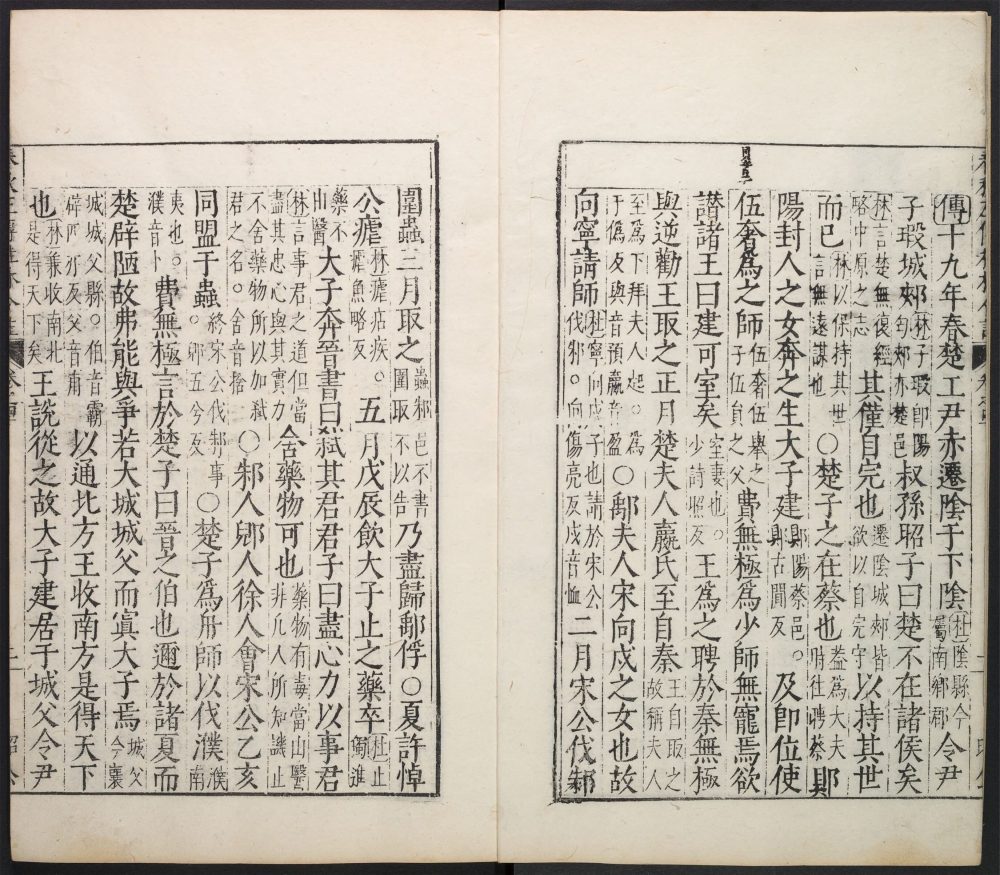 傳十九年春楚工尹赤遷陰于下陰杜陰縣今屬南鄉郡令尹
子瑕城郟林子瑕即陽匄郟亦楚邑叔孫昭子曰楚不在諸侯矣
林言楚無復經略中原之志其僅自完也遷陰城郟皆欲以自完守以持其世
而已林以保持其世言無遠謀也○楚子之在蔡也蓋為大夫時往聘蔡郹
陽封人之女奔之生大子建郹陽蔡邑。郹古闃反及即位使
伍奢為之師伍奢伍舉之子伍員之父費無極為少師無寵焉欲
譖諸王曰建可室矣室妻也。少詩照反王為之聘於秦無極
與逆勸王取之正月楚夫人嬴氏至自秦王自取之故稱夫人
至為下拜夫人起。為于偽反與音預嬴音盈○鄅夫人宋向戌之女也故
向寧請師杜寧向戌子也請於宋公伐邾。向傷亮反戌音恤二月宋公伐邾
圍蟲三月取之蟲邾邑不書圍取不以告乃盡歸鄅俘○夏許悼
公瘧林瘧痁疾。瘧魚略反五月戊辰飲大子止之藥卒杜止獨進
藥不由醫大子奔晉書曰弒其君君子曰盡心力以事君
林言事君之道但當盡其忠心與其實力舍藥物可也藥物有毒當由醫非凡人所知譏止
不舍藥物所以加弒君之名。舍音捨○邾人郳人徐人會宋公乙亥
同盟于蟲終宋公伐邾事。郳五兮反○楚子為舟師以伐濮濮南
夷也。濮音卜費無極言於楚子曰晉之伯也邇於諸夏而
楚辟陋故弗能與爭若大城城父而寘大子焉城父今襄
城城父縣。伯音霸辟匹亦反父音甫以通北方王收南方是得天下
也林兼收南北是得天下矣王說從之故大子建居于城父令尹